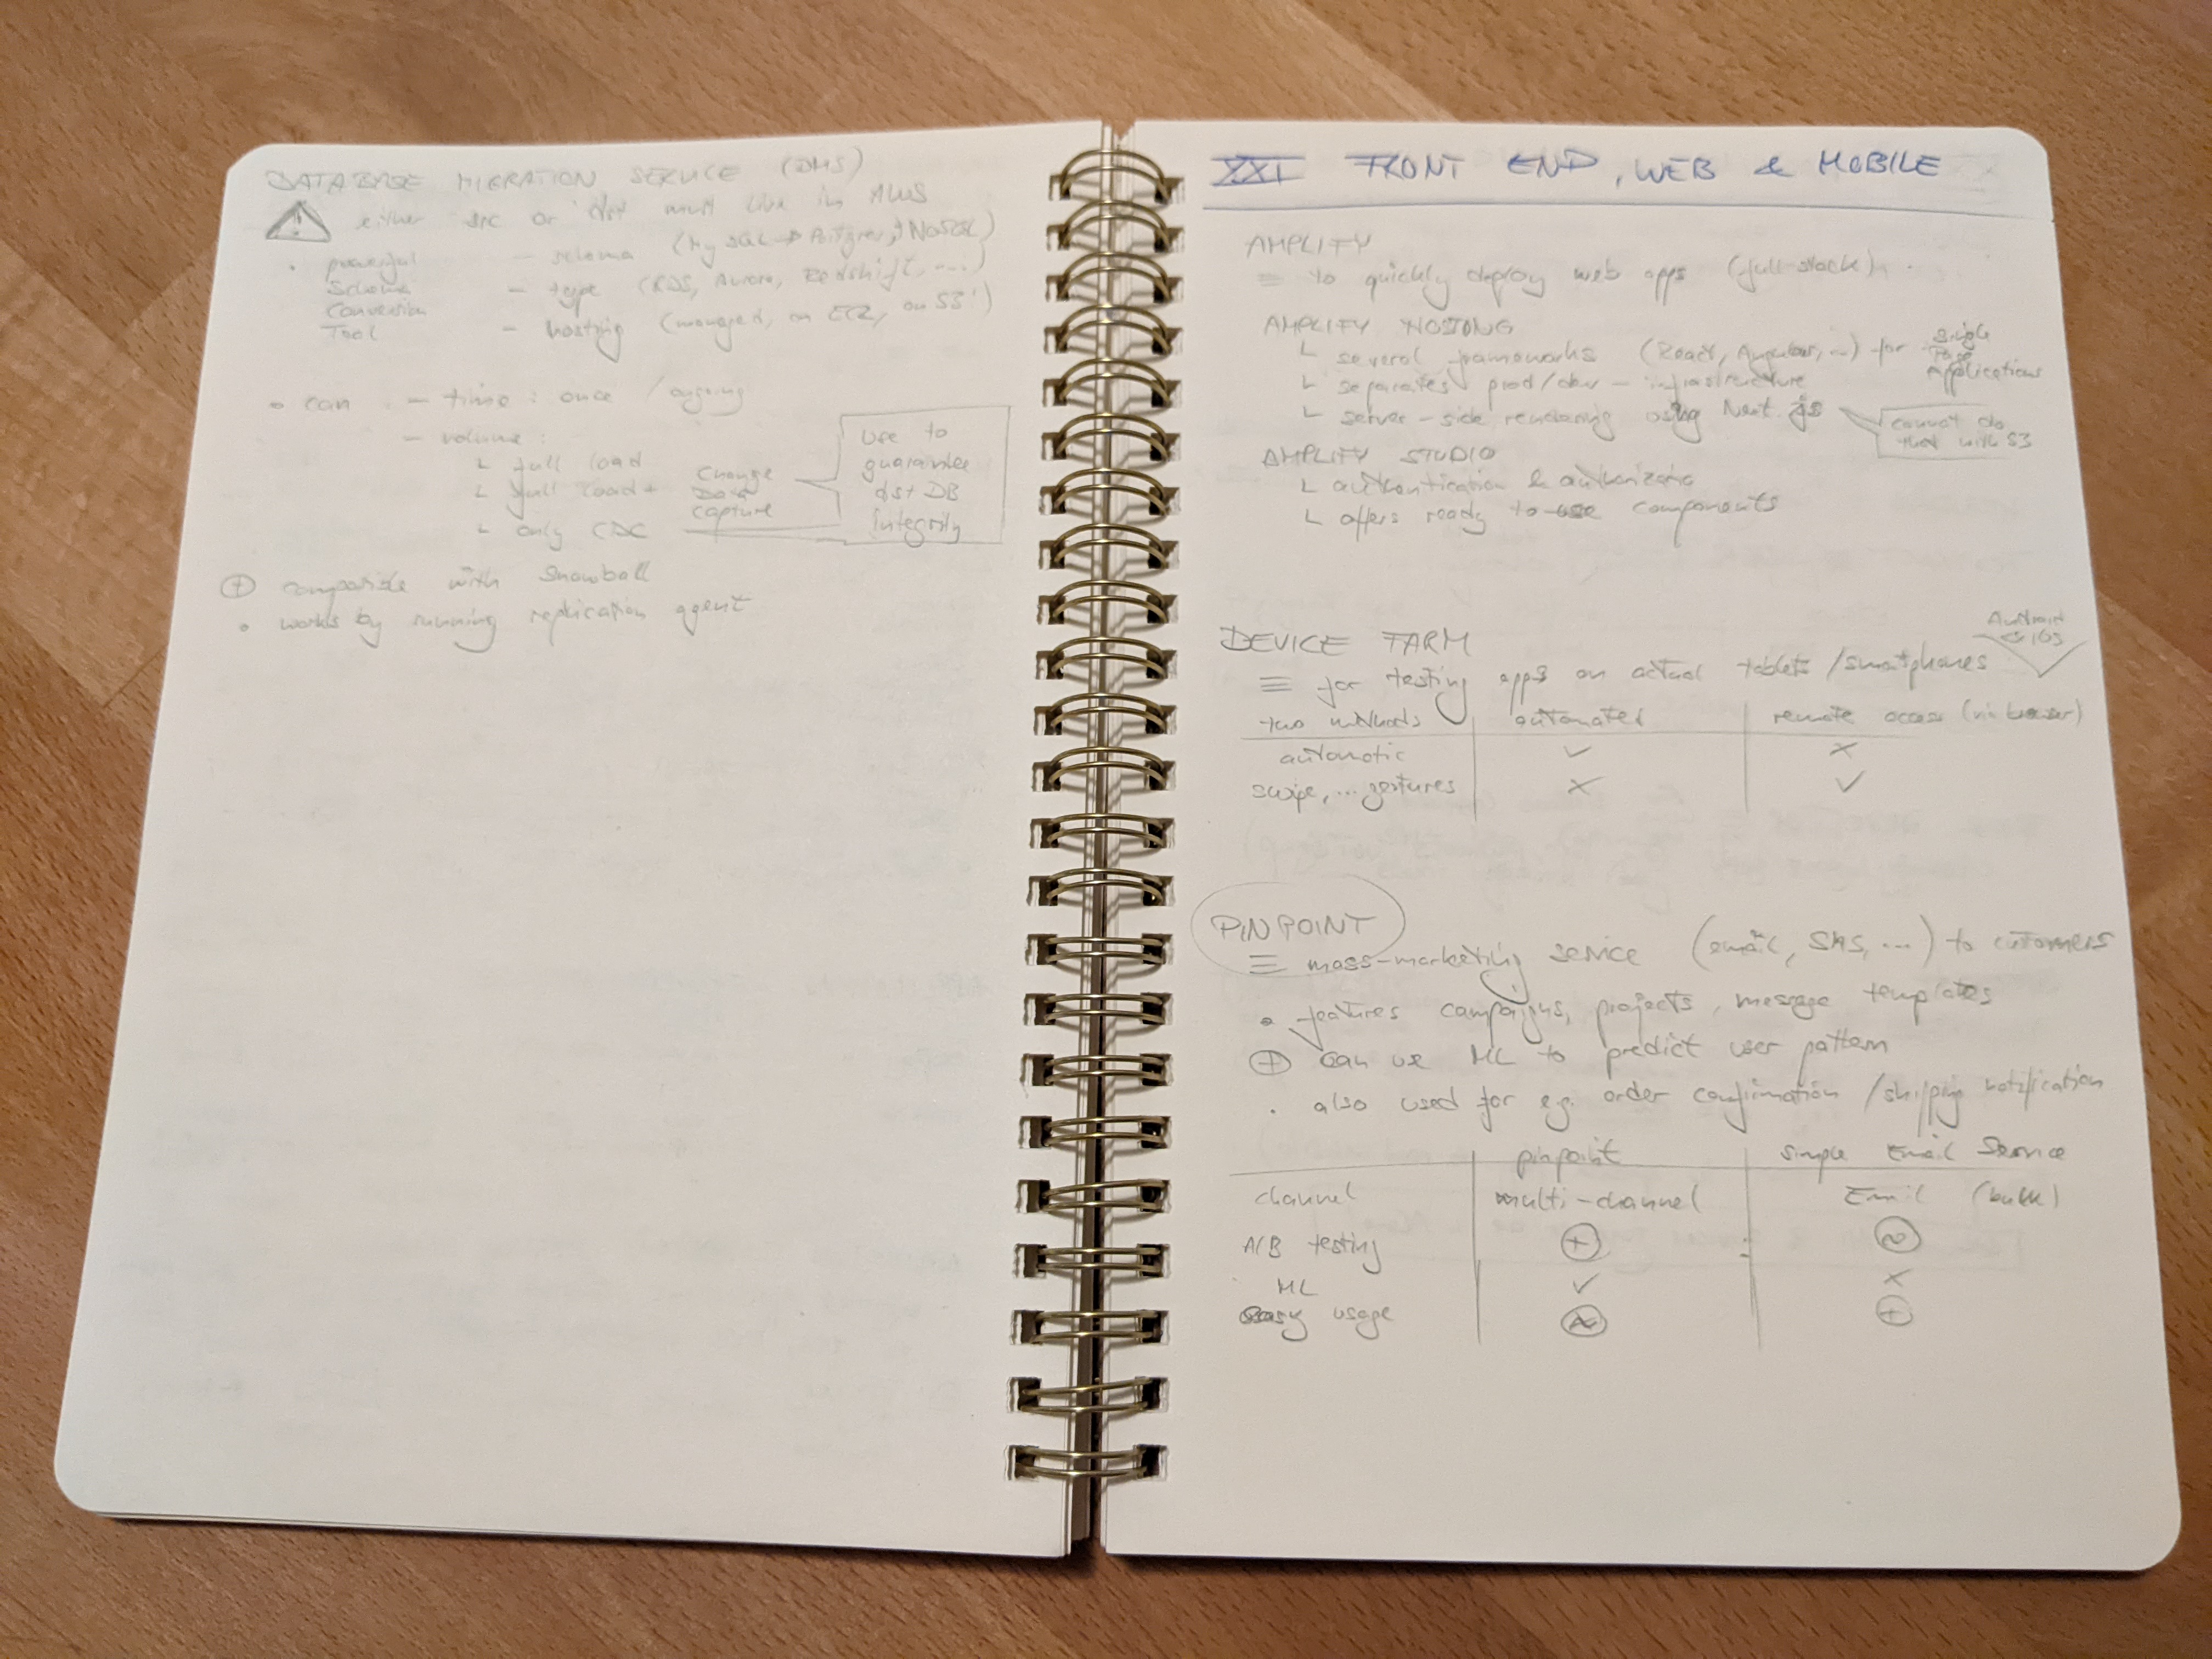 DATABASE MIGRATION SERVICE (DMS)
either src or dst must live in AWS
• powerful Schema Conversion Tool
– schema (MySQL → Postgres, NoSQL)
– type (RDS, Aurora, Redshift, ...)
– hosting (managed, on EC2, on S3!)
• can – time: once / ongoing
– volume:
└ full load
└ full load + Change Data Capture
└ only CDC
use to
guarantee
dst DB
integrity
⊕ compatible with Snowball
• works by running replication agent
XXI FRONT END, WEB & MOBILE
AMPLIFY
≡ to quickly deploy web apps (full-stack)
AMPLIFY HOSTING
└ several frameworks (React, Angular, ...) for Single Page Applications
└ separates prod/dev – infrastructure
└ server-side rendering using Next.js
cannot do
that with S3
AMPLIFY STUDIO
└ authentication & authorizatio
└ offers ready to-use components
DEVICE FARM
Android
& iOS
≡ for testing apps on actual tablets/smatphones
two methods automated remote access (via browser)
automatic ✓ ×
swipe, ... gestures × ✓
PINPOINT
≡ mass-marketing service (email, SMS, ...) to cutomers
• features campaigns, projects, message templates
⊕ can use ML to predict user pattern
• also used for e.g. order confirmation /shipping notification
pinpoint simple Email Service
channel multi-channel Email (bulk)
A/B testing ⊕ ~
ML ✓ ×
easy usage ~ ⊕